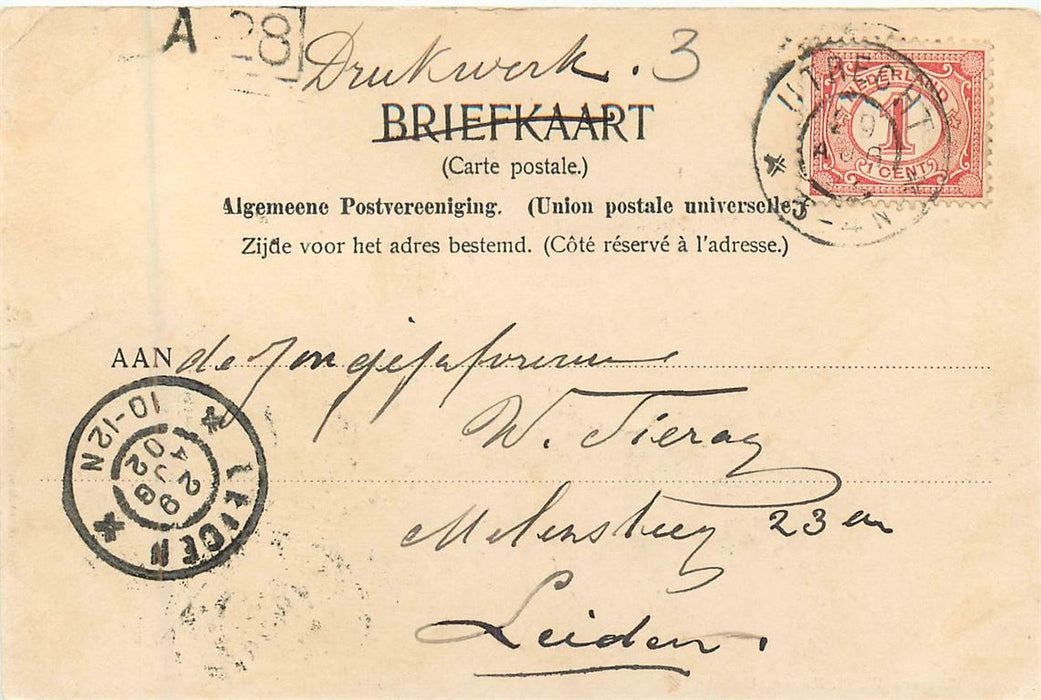 A 28
Drukwerk. 3
BRIEFKAART
(Carte postale.)
Algemeene Postvereeniging. (Union postale universelle)
Zijde voor het adres bestemd. (Côté réservé à l'adresse.)
UTRECHT
3-4N
NEDERLAND
1
1 CENT
AAN de Jongejufvrouw
W. Tieray
Molensteeg 23 en
Leiden.
LEIDEN
10-12N
29
02